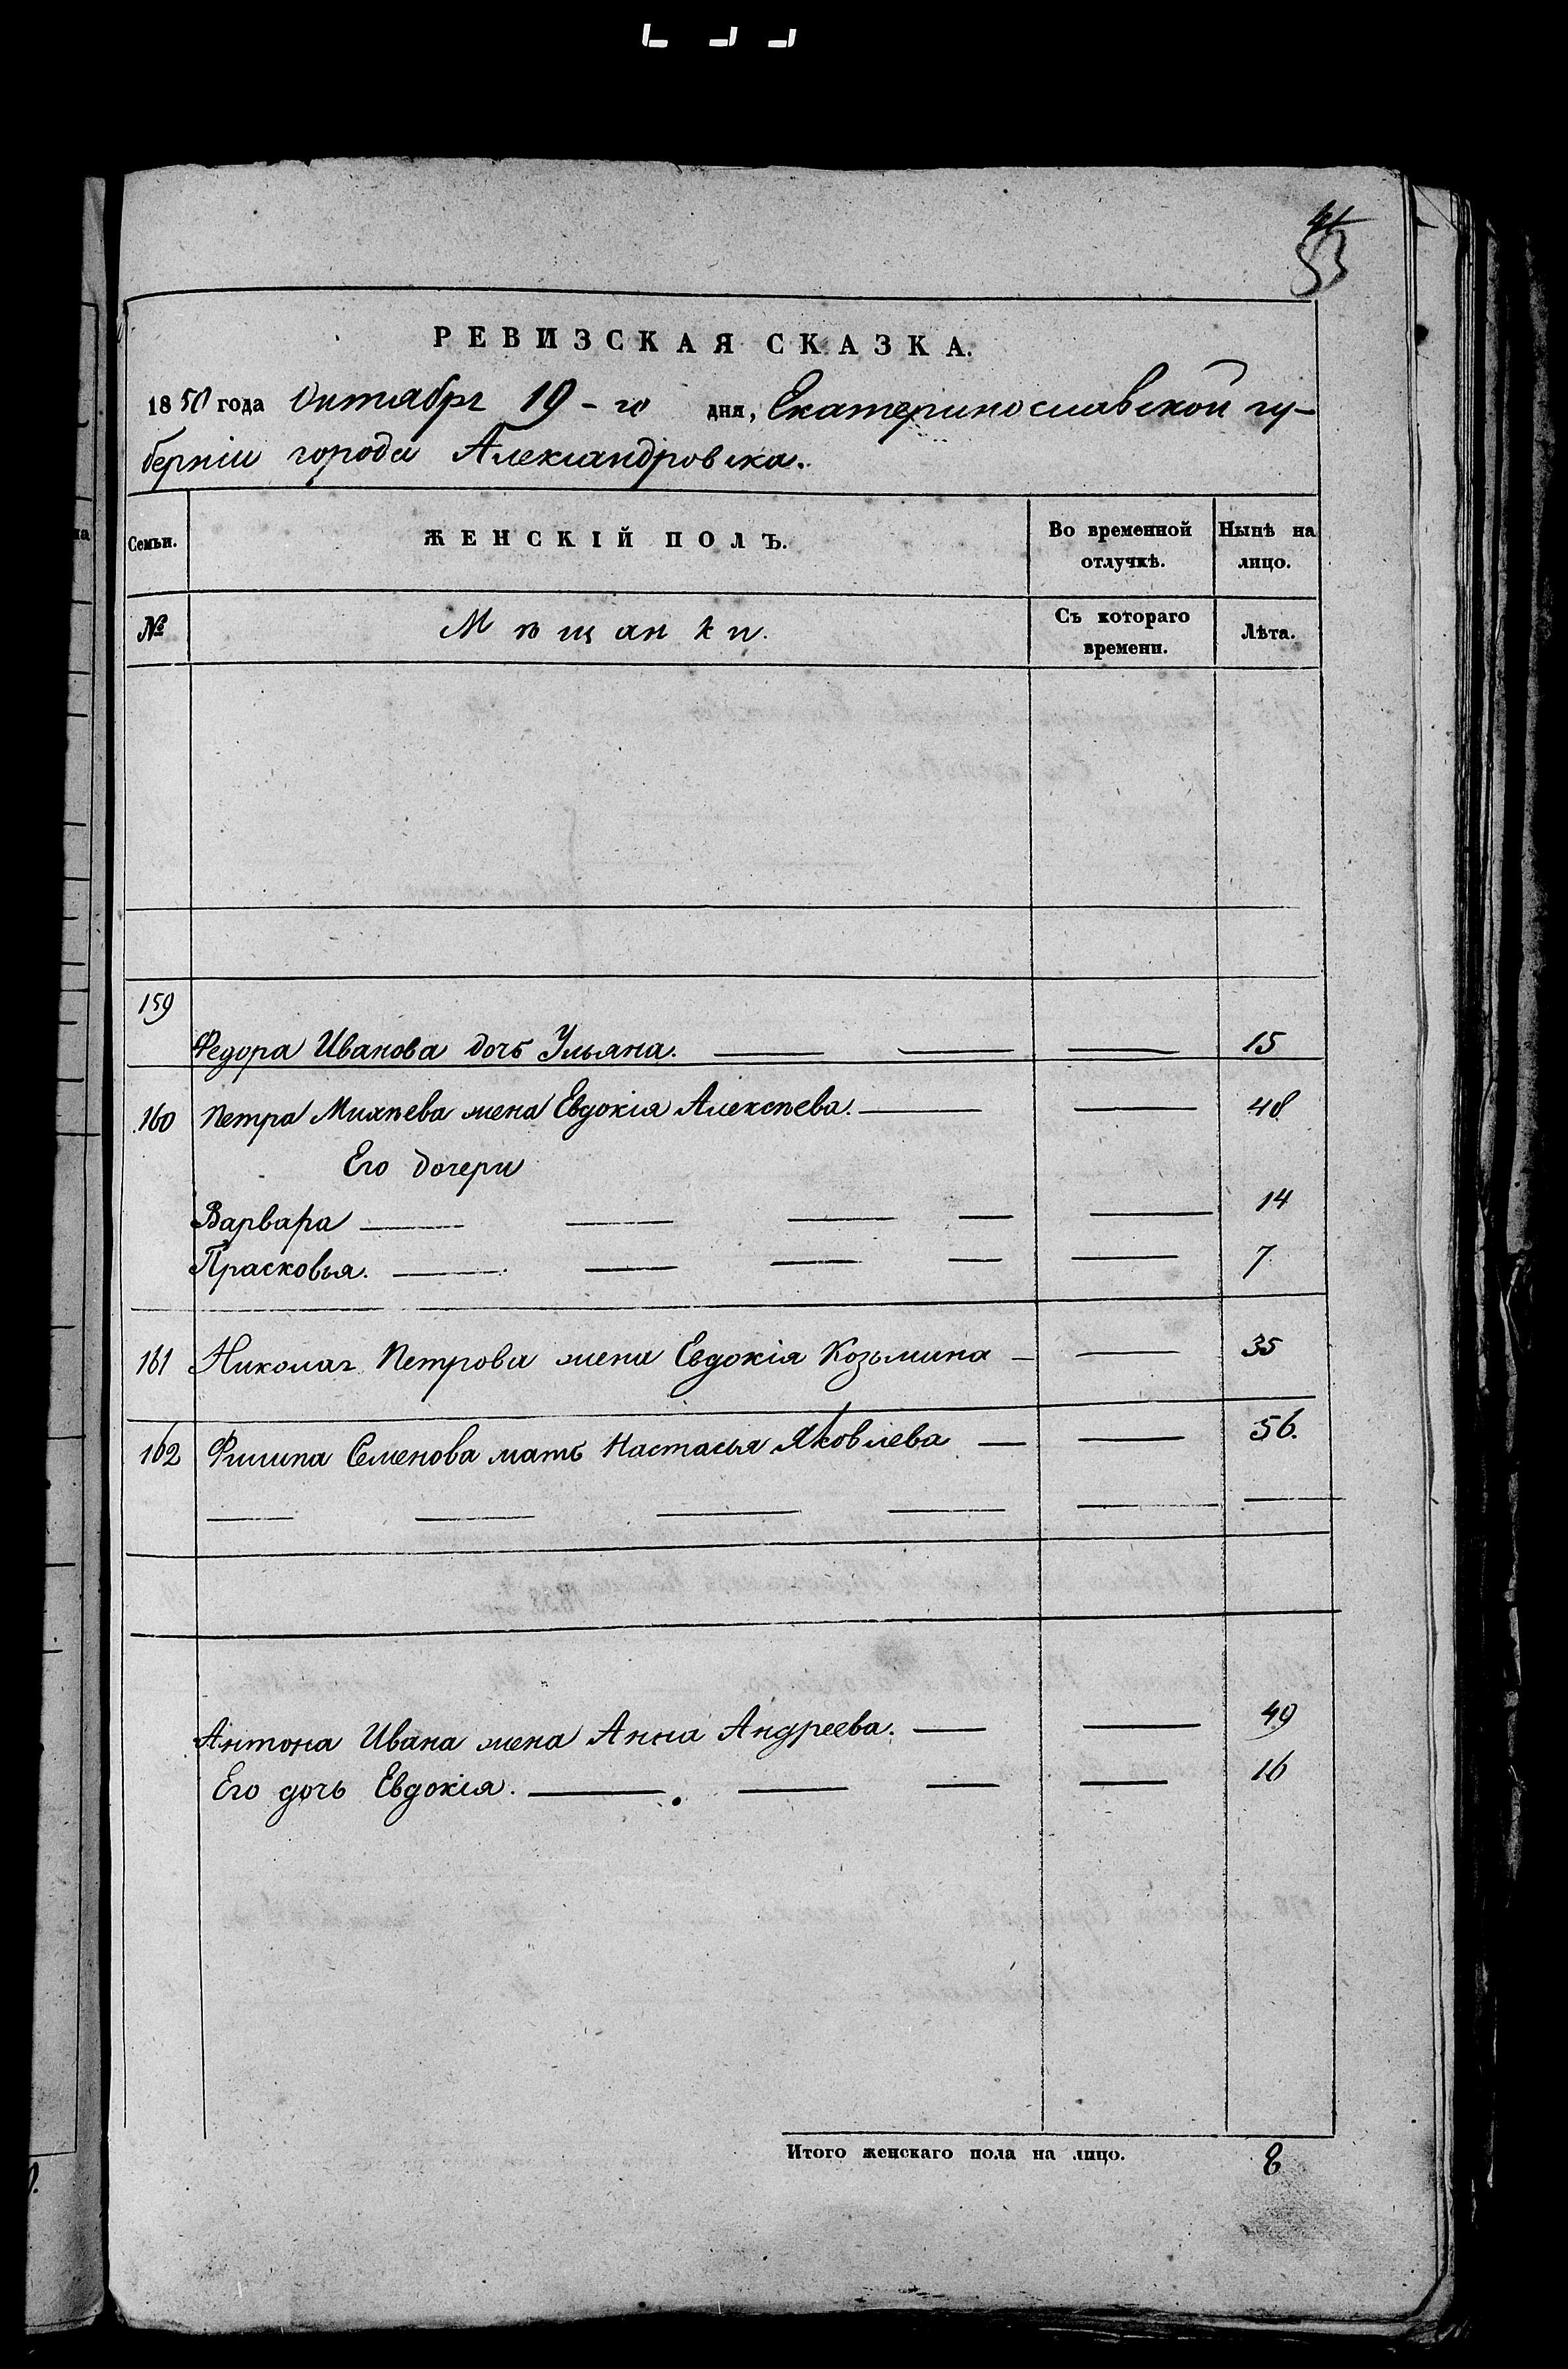 41
53
РЕВИЗСКАЯ СКАЗКА.
1850 года Октября 19-го дня, Екатеринославской гу-
берніи города Александровска.
Семьи. ЖЕНСКІЙ ПОЛЪ. Во временной отлучкѣ. Нынѣ на лицо.
№ Мѣщанки. Съ котораго времени. Лѣта.
159
Федора Иванова дочь Ульяна. 15
160 Петра Михѣева жена Евдокія Алексѣева. 48
Его дочери
Варвара 14
Прасковья. 7
161 Николая Петрова жена Евдокія Козьмина 35
162 Филипа Семенова мать Настасья Яковлева 56.
Антона Ивана жена Анна Андреева. 49
Его дочь Евдокія. 16
Итого женскаго пола на лицо. 8